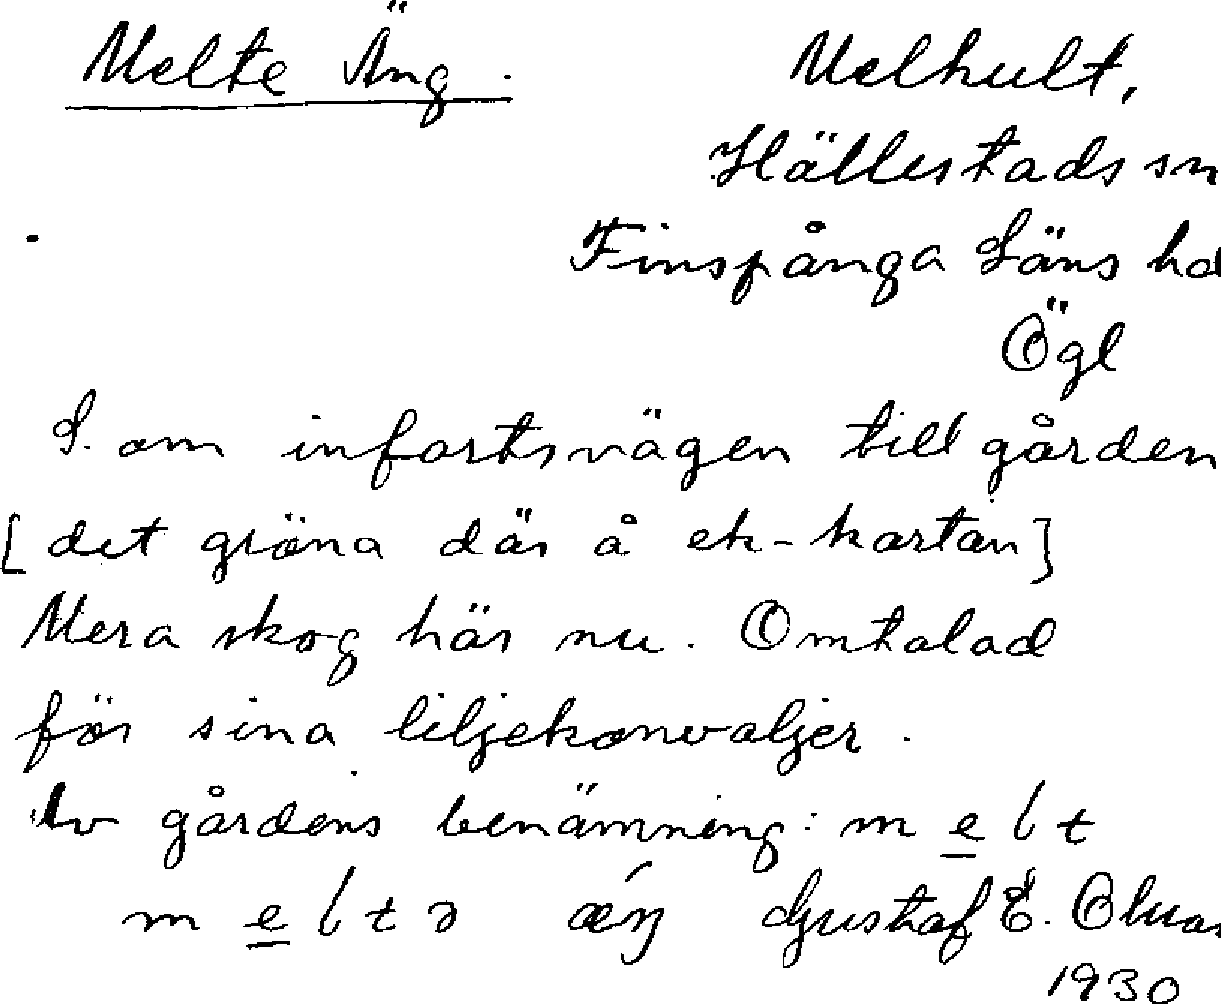 Melte Äng. Melhult,
Hällestads sn
Finspånga Läns hd
Ögl
S. om infartsvägen till gården
[det gröna där å ek-kartan]
Mera skog här nu. Omtalad
för sina liljekonvaljer.
Av gårdens benämning: m e l t
m e l t ə æŋ Gustaf E.
1930